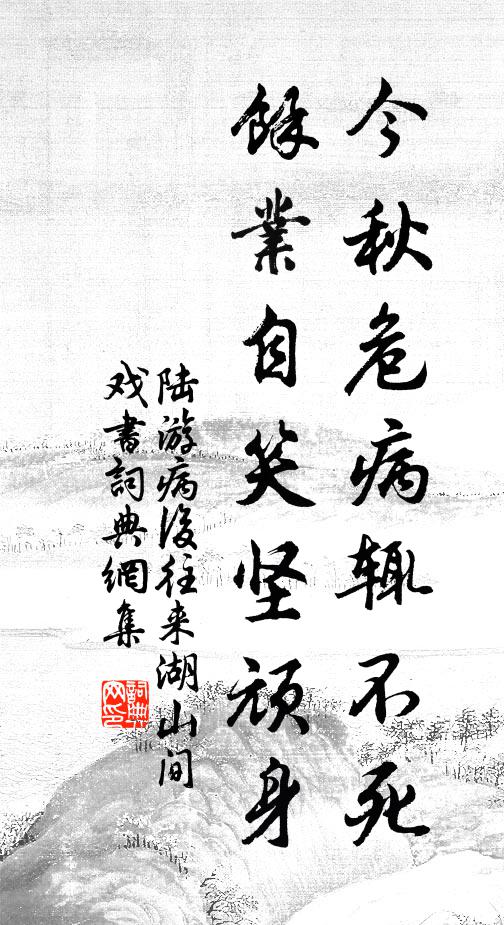 今秋危病輒不死
餘業自笑坚頑身
陆游病後往来湖山间
戏書詞典網集
詞典
网印